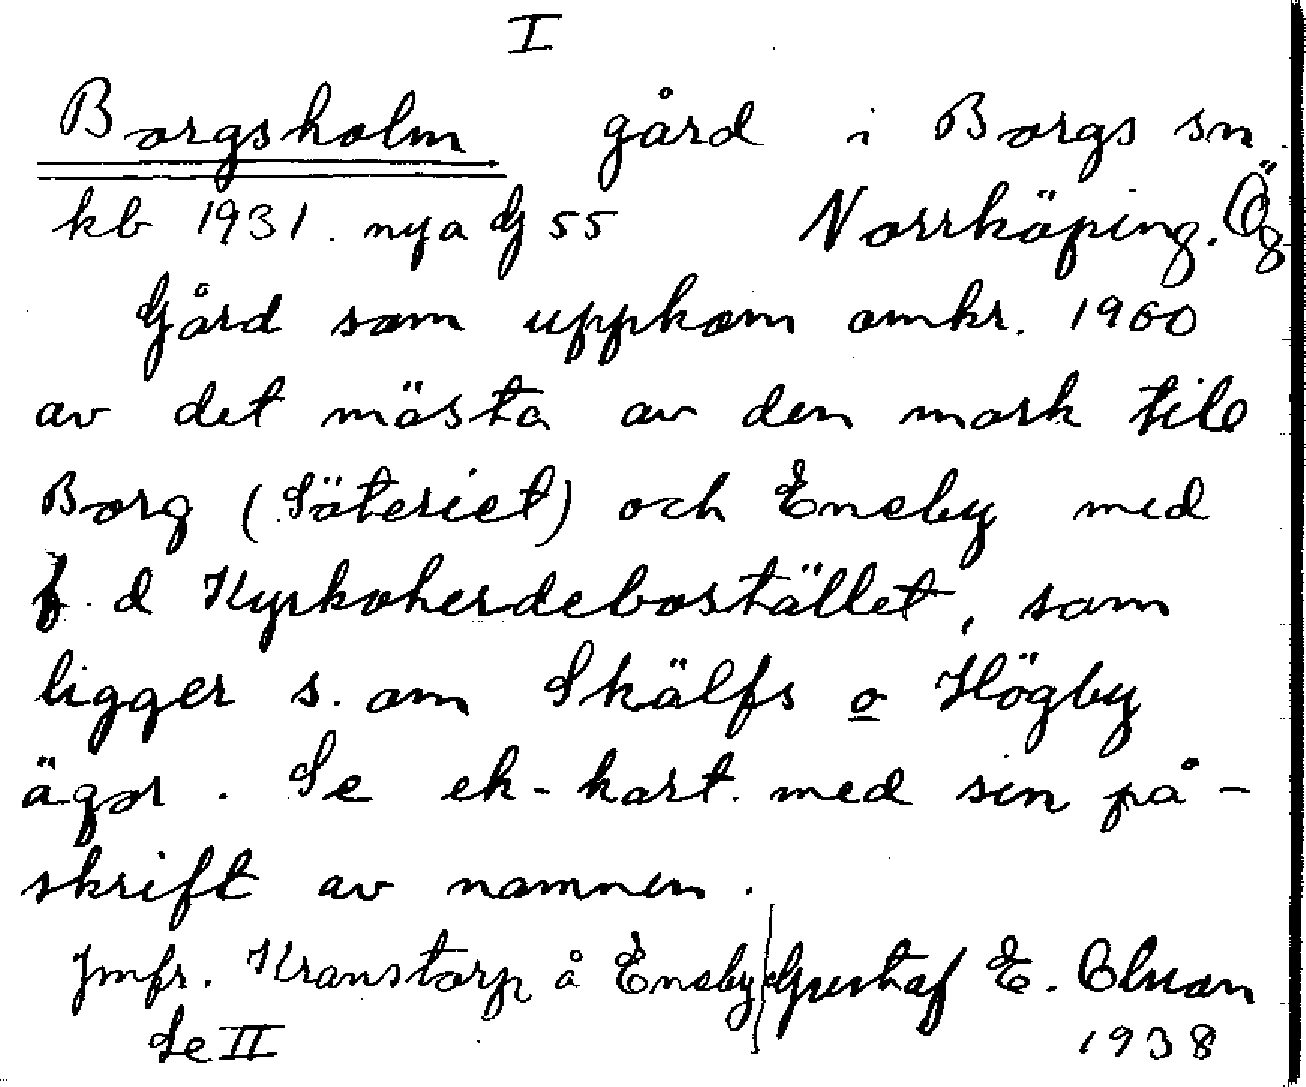 I
Borgsholm gård i Borgs sn.
kb 1931. nya G 55 Norrköping. Ög
Gård som uppkom omkr. 1900
av det mästa av den mark till
Borg (Säteriet) och Eneby med
f. d Kyrkoherdebostället, som
ligger s. om Skälfs o Högby
ägor. Se ek-kart. med sin på-
skrift av namnen.
Jmfr. Kranstorp å Eneby Gustaf E.
Se II 1938